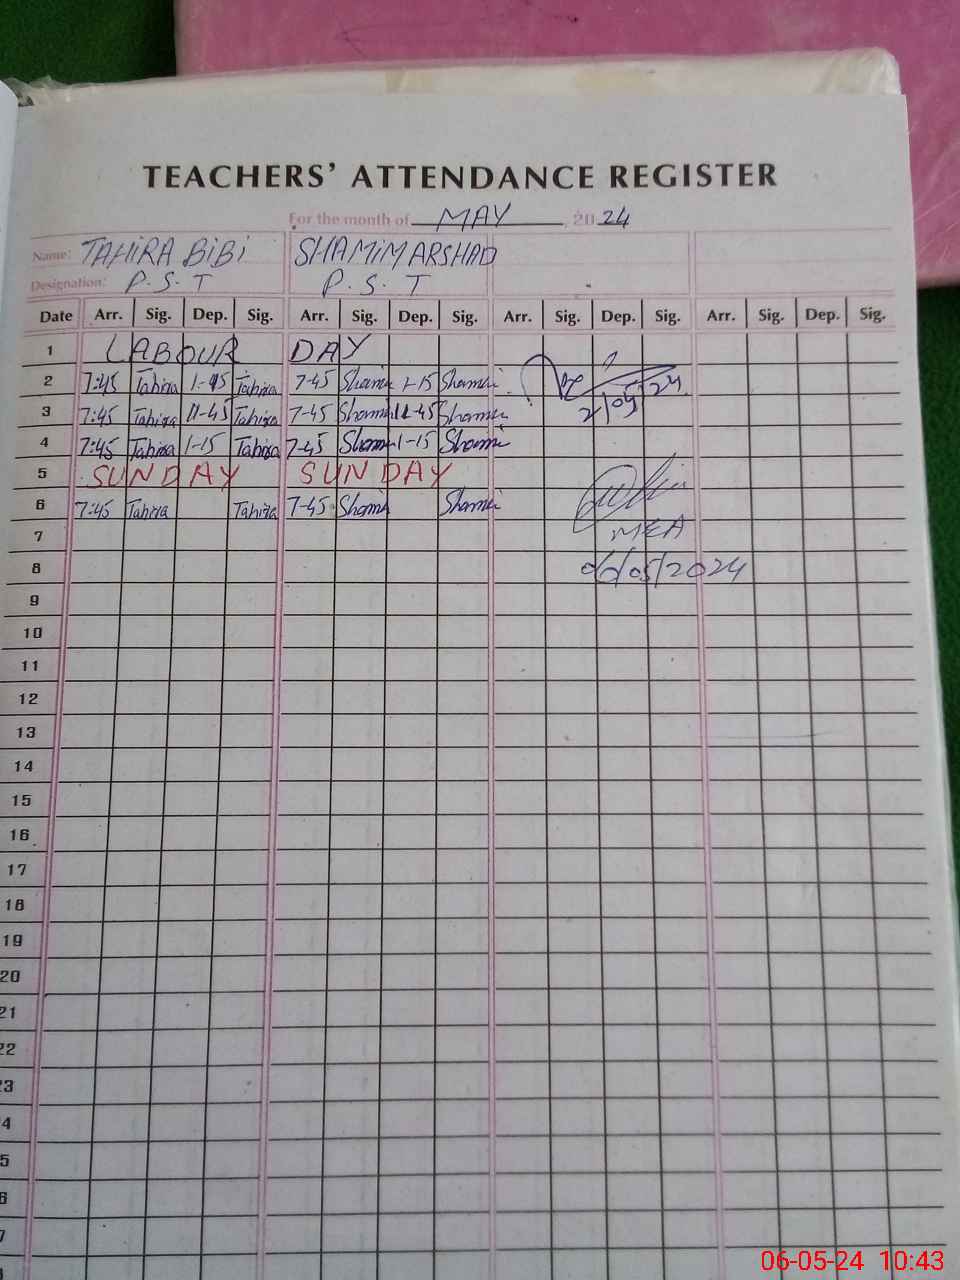 TEACHERS' ATTENDANCE REGISTER
For the month of MAY, 2024
Name: TAHIRA BIBI SHAMIM ARSHAD
Designation: P.S.T P.S.T
Date Arr. Sig. Dep. Sig. Arr. Sig. Dep. Sig. Arr. Sig. Dep. Sig. Arr. Sig. Dep. Sig.
1 LABOUR DAY
2 7:45 Tahira 1-45 Tahira 7-45 Shamim 1-15 Shamim
2/05/24
3 7:45 Tahira 11-45 Tahira 7-45 Shamim 11-45 Shamim
4 7:45 Tahira 1-15 Tahira 7-45 Shamim 1-15 Shamim
5 SUNDAY SUNDAY
6 7:45 Tahira Tahira 7-45 Shamim Shamim
7 MEA
8 06/05/2024
9
10
11
12
13
14
15
16
17
18
19
20
21
22
23
24
25
26
27
06-05-24 10:43